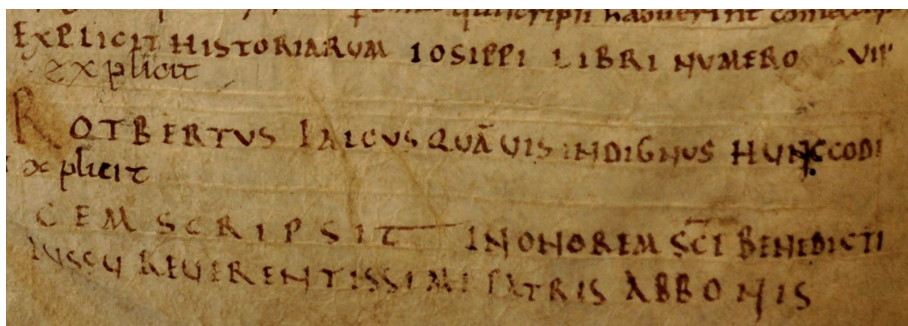 qui scripti habuerint
EXPLICIT HISTORIARUM IOSIPPI LIBRI NUMERO VII
explicit
ROTBERTUS LAICUS QUĀVIS INDIGNUS HUNC CODI
explicit
CEM SCRIPSIT IN ONOREM SC̄I BENEDICTI
IUSSU REVERENTISSIMI PATRIS ABBONIS